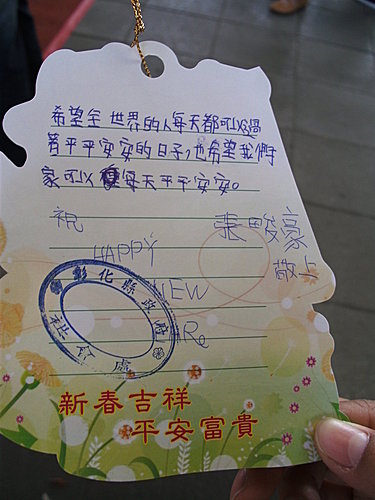 希望全世界的人每天都可以過
著平平安安的日子,也希望我們
家可以每天平平安安。
祝
張畯豪
HAPPY
敬上
NEW
彰化縣政府
社會處
新春吉祥
平安富貴